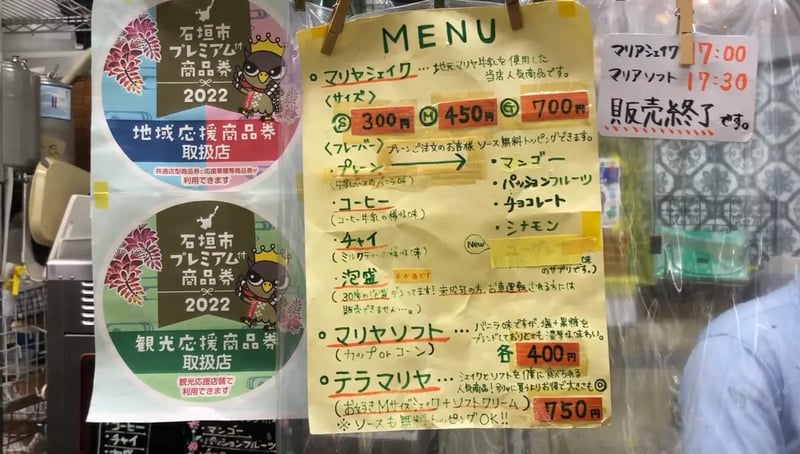 石垣市
プレミアム付
商品券
2022
地域応援商品券
取扱店
共通店型商品券と応援業種等商品券が
利用できます
石垣市
プレミアム付
商品券
2022
観光応援商品券
取扱店
観光応援店舗で
利用できます
MENU
マリヤシェイク…地元マリヤ牛乳を使用した
当店人気商品です。
〈サイズ〉
S 300円 M 450円 G 700円
〈フレーバー〉プレーンご注文のお客様 ソース無料トッピングできます。
・プレーン
(牛乳ベースのバニラ味)
・マンゴー
・パッションフルーツ
・コーヒー
(コーヒー牛乳の様な味)
・チョコレート
・シナモン
・チャイ
(ミルクティーの様な味)
New
味
のサプリです。)
・泡盛
(30度の泡盛が入ってます! 未成年の方、お車運転される方には
販売できません…。)
マリヤソフト…バニラ味ですが、塩+黒糖を
ブレンドしておりとても濃厚な味わい。
(カップorコーン)
各 400円
テラマリヤ…シェイクとソフトを1度に食べられる
人気商品!別々に買うよりお得で大きさも◎
(お好きMサイズシェイク+ソフトクリーム)
750円
※ソースも無料トッピングOK!!
マリアシェイク 17:00
マリアソフト 17:30
販売終了です。
・コーヒー
・チャイ
・マンゴー
・パッションフルーツ